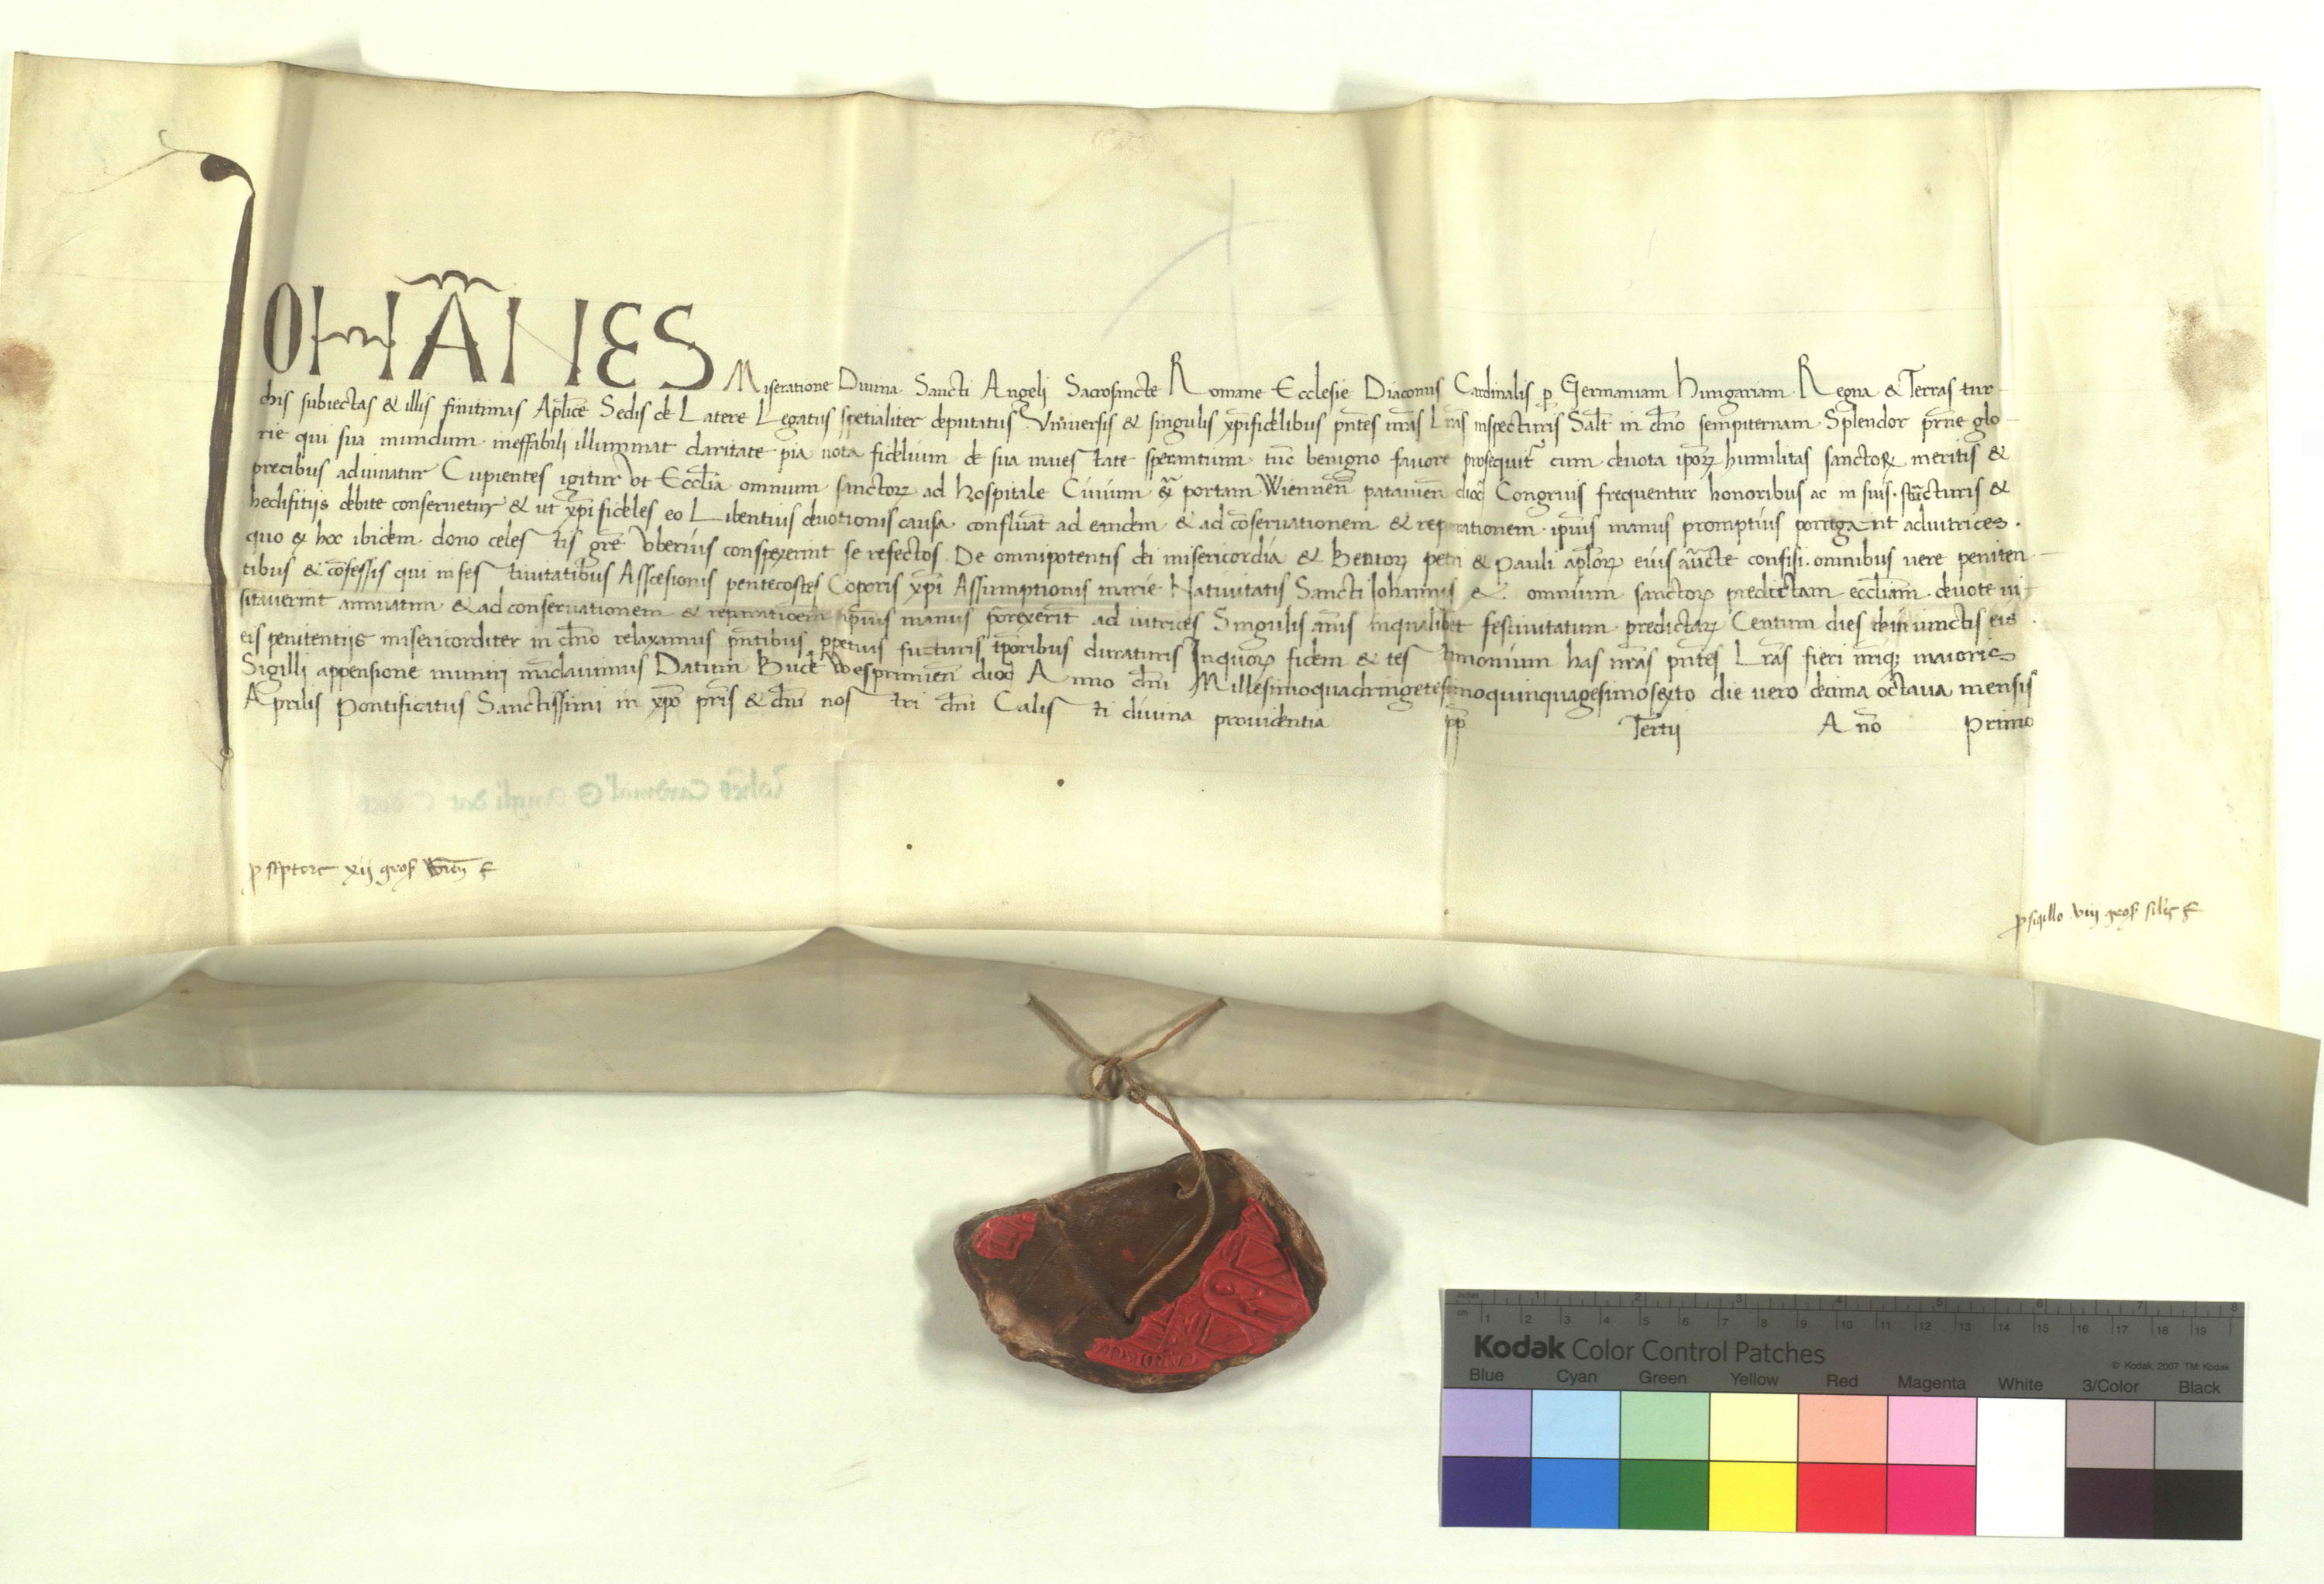 IOHÃNES Miseratione Diuina Sancti Angelj Sacrosancte Romane Ecclesie Diaconus Cardinalis p Germaniam Hungariam Regna & Terras tur-
chis subiectas & illis finitimas Aplice Sedis de Latere Legatus spetialiter deputatus Vniuersis & singulis xpifidelibus pntes nras Lras inspecturis Salt in dno sempiternam Splendor prne glo-
rie qui sua mundum ineffabili illuminat claritate pia uota fidelium de sua maiestate sperantium tuc benigno fauore prosequit cum deuota ipoꝝ humilitas sanctoꝝ meritis &
precibus adiuuatur Cupientes igitur vt Ecclia omnium sanctoꝝ ad hospitale Ciuium ex portam Wiennen patauien dioc Congruis frequentur honoribus ac in suis structuris &
hedifitijs debite conseruetur & ut xpi fideles eo Libentius deuotionis causa confluat ad eandem & ad coseruationem & reparationem ipius manus promptius porrigant adiutrices.
quo ex hoc ibidem dono celestis gre vberius conspexerint se refectos De omnipotentis dei misericordia & Beatoꝝ petri & Pauli aploꝝ eius aucte confisi omnibus uere peniten-
tibus & cofessis qui in festiuitatibus Asscesionis pentecostes Coporis xpi Assumptionis marie Natiuitatis Sancti Iohannis & omnium sanctoꝝ predictam eccliam deuote ui-
sitauerint annuatim & ad conseruationem & reparatioem ipius manus porexerit ad iutrices Singulis anis inqualibet festiuitatum predictaꝝ Centum dies de iniunctis eis
eis penitentijs misericorditer in dno relaxamus pntibus ppetuis futuris tporibus duraturis Inquoꝝ fidem & testimonium has nras pntes Lras fieri nriq; maioris
Sigilli appensione muniri madauimus Datum Bude Wesprimien dioc Anno dni Millesimoquadringetesimoquinquagesimosexto die vero decima octaua mensis
Aprilis Pontificatus Sanctissimi in xpo pris & dni nostri dni Calisti diuina prouidentia pp Tertij Ano Primo
p sc͛ptore xij gros wien
p sigillo viij gros
inches 1 2 3 4 5 6 7 8
cm 1 2 3 4 5 6 7 8 9 10 11 12 13 14 15 16 17 18 19
Kodak Color Control Patches
© Kodak, 2007 TM: Kodak
Blue Cyan Green Yellow Red Magenta White 3/Color Black